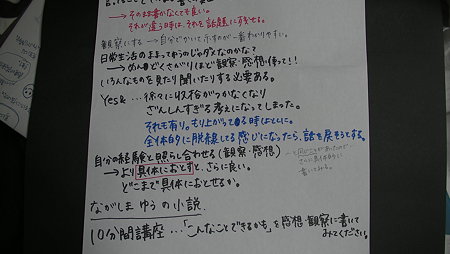 →そのまま書かなくて良い。
それが違う時は、それを話題に戻せる。
観察にする → 自分でかいて示すのが一番わかりやすい。
日常生活のままってゆうのじゃダメなのかな?
→めんどくさがりほど観察・感想使って!!
いろんなものを見たり聞いたりする必要ある。
Yes& … 徐々に収拾がつかなくなり
ざんしんすぎる考えになってしまった。
それも有り。もり上がってる時はとくに。
全体的に脱線してる感じになったら、話を戻そうとする。
自分の経験と照らし合わせる(観察・感想)
→より具体におとすと、さらに良い。
どこまで具体におとせるか。
ながしまゆうの小説
10分間講座…「こんなことできるかも」を感想・観察に書いて
みてください。